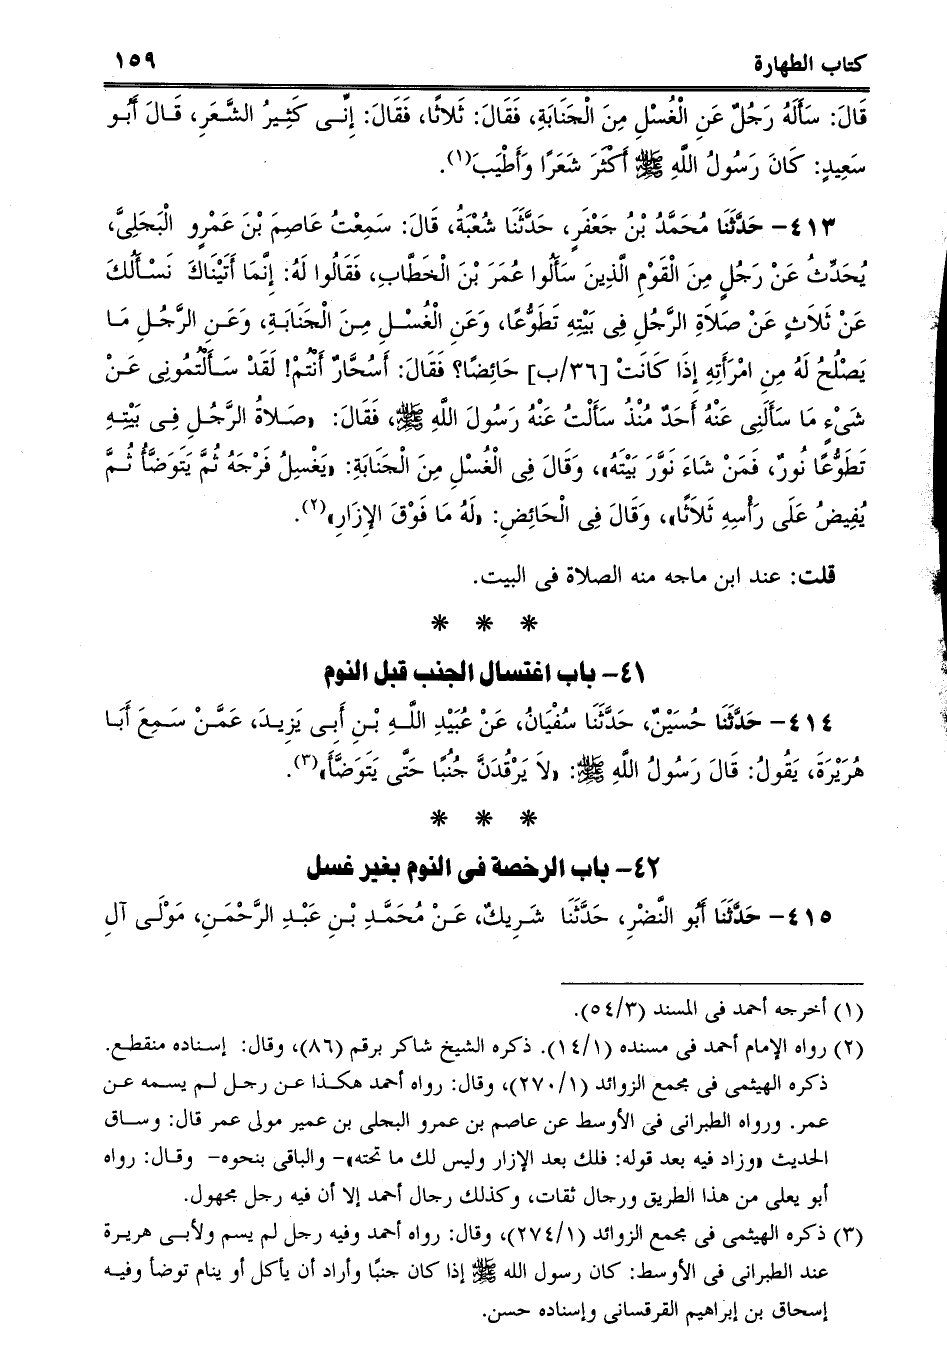 كتاب الطهارة ١٥٩
قَالَ: سَأَلَهُ رَجُلٌ عَنِ الْغُسْلِ مِنَ الْجَنَابَةِ، فَقَالَ: ثَلاثًا، فَقَالَ: إِنِّى كَثِيرُ الشَّعَرِ، قَالَ أَبُو
سَعِيدٍ: كَانَ رَسُولُ اللَّهِ ﷺ أَكْثَرَ شَعَرًا وَأَطْيَبَ(١).
٤١٣- حَدَّثَنَا مُحَمَّدُ بْنُ جَعْفَرٍ، حَدَّثَنَا شُعْبَةُ، قَالَ: سَمِعْتُ عَاصِمَ بْنَ عَمْرٍو الْبَجَلِىَّ،
يُحَدِّثُ عَنْ رَجُلٍ مِنَ الْقَوْمِ الَّذِينَ سَأَلُوا عُمَرَ بْنَ الْخَطَّابِ، فَقَالُوا لَهُ: إِنَّمَا أَتَيْنَاكَ نَسْأَلُكَ
عَنْ ثَلاثٍ عَنْ صَلاَةِ الرَّجُلِ فِى بَيْتِهِ تَطَوُّعًا، وَعَنِ الْغُسْلِ مِنَ الْجَنَابَةِ، وَعَنِ الرَّجُلِ مَا
يَصْلُحُ لَهُ مِنِ امْرَأَتِهِ إِذَا كَانَتْ [٣٦/ب] حَائِضًا؟ فَقَالَ: أَسُحَّارٌ أَنْتُمْ! لَقَدْ سَأَلْتُمُونِى عَنْ
شَىْءٍ مَا سَأَلَنِى عَنْهُ أَحَدٌ مُنْذُ سَأَلْتُ عَنْهُ رَسُولَ اللَّهِ ﷺ، فَقَالَ: «صَلاةُ الرَّجُلِ فِى بَيْتِهِ
تَطَوُّعًا نُورٌ، فَمَنْ شَاءَ نَوَّرَ بَيْتَهُ»، وَقَالَ فِى الْغُسْلِ مِنَ الْجَنَابَةِ: «يَغْسِلُ فَرْجَهُ ثُمَّ يَتَوَضَّأُ ثُمَّ
يُفِيضُ عَلَى رَأْسِهِ ثَلاَثًا»، وَقَالَ فِى الْحَائِضِ: «لَهُ مَا فَوْقَ الإِزَارِ»(٢).
قلت: عند ابن ماجه منه الصلاة فى البيت.
* * *
٤١- باب اغتسال الجنب قبل النوم
٤١٤- حَدَّثَنَا حُسَيْنٌ، حَدَّثَنَا سُفْيَانُ، عَنْ عُبَيْدِ اللَّهِ بْنِ أَبِى يَزِيدَ، عَمَّنْ سَمِعَ أَبَا
هُرَيْرَةَ، يَقُولُ: قَالَ رَسُولُ اللَّهِ ﷺ: «لاَ يَرْقُدَنَّ جُنُبًا حَتَّى يَتَوَضَّأَ»(٣).
* * *
٤٢- باب الرخصة فى النوم بغير غسل
٤١٥- حَدَّثَنَا أَبُو النَّضْرِ، حَدَّثَنَا شَرِيكٌ، عَنْ مُحَمَّدِ بْنِ عَبْدِ الرَّحْمَنِ، مَوْلَى آلِ
(١) أخرجه أحمد فى المسند (٥٤/٣).
(٢) رواه الإمام أحمد فى مسنده (١٤/١). ذكره الشيخ شاكر برقم (٨٦)، وقال: إسناده منقطع.
ذكره الهيثمى فى مجمع الزوائد (٢٧٠/١)، وقال: رواه أحمد هكذا عن رجل لم يسمه عن
عمر. ورواه الطبرانى فى الأوسط عن عاصم بن عمرو البجلى بن عمير مولى عمر قال: وساق
الحديث «وزاد فيه بعد قوله: فلك بعد الإزار وليس لك ما تحته»- والباقى بنحوه- وقال: رواه
أبو يعلى من هذا الطريق ورجال ثقات، وكذلك رجال أحمد إلا أن فيه رجل مجهول.
(٣) ذكره الهيثمى فى مجمع الزوائد (٢٧٤/١)، وقال: رواه أحمد وفيه رجل لم يسم ولأبى هريرة
عند الطبرانى فى الأوسط: كان رسول الله ﷺ إذا كان جنبًا وأراد أن يأكل أو ينام توضأ وفيه
إسحاق بن إبراهيم القرقسانى وإسناده حسن.